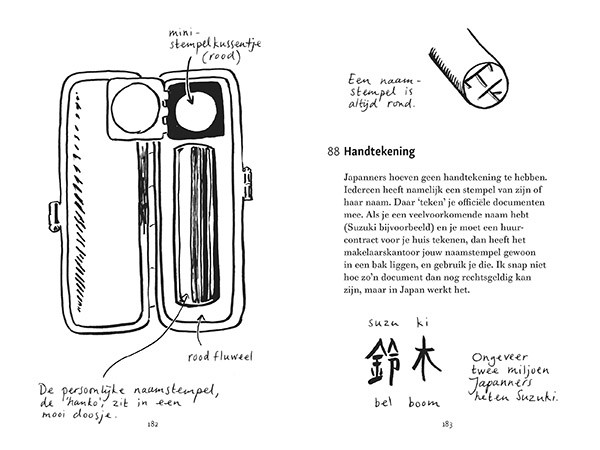 mini-
stempelkussentje
(rood)
rood fluweel
De persoonlijke naamstempel,
de 'hanko', zit in een
mooi doosje.
182
Een naam-
stempel is
altijd rond.
88 Handtekening
Japanners hoeven geen handtekening te hebben.
Iedereen heeft namelijk een stempel van zijn of
haar naam. Daar 'teken' je officiële documenten
mee. Als je een veelvoorkomende naam hebt
(Suzuki bijvoorbeeld) en je moet een huur-
contract voor je huis tekenen, dan heeft het
makelaarskantoor jouw naamstempel gewoon
in een bak liggen, en gebruik je die. Ik snap niet
hoe zo'n document dan nog rechtsgeldig kan
zijn, maar in Japan werkt het.
suzu ki
鈴木
bel boom
Ongeveer
twee miljoen
Japanners
heten Suzuki.
183